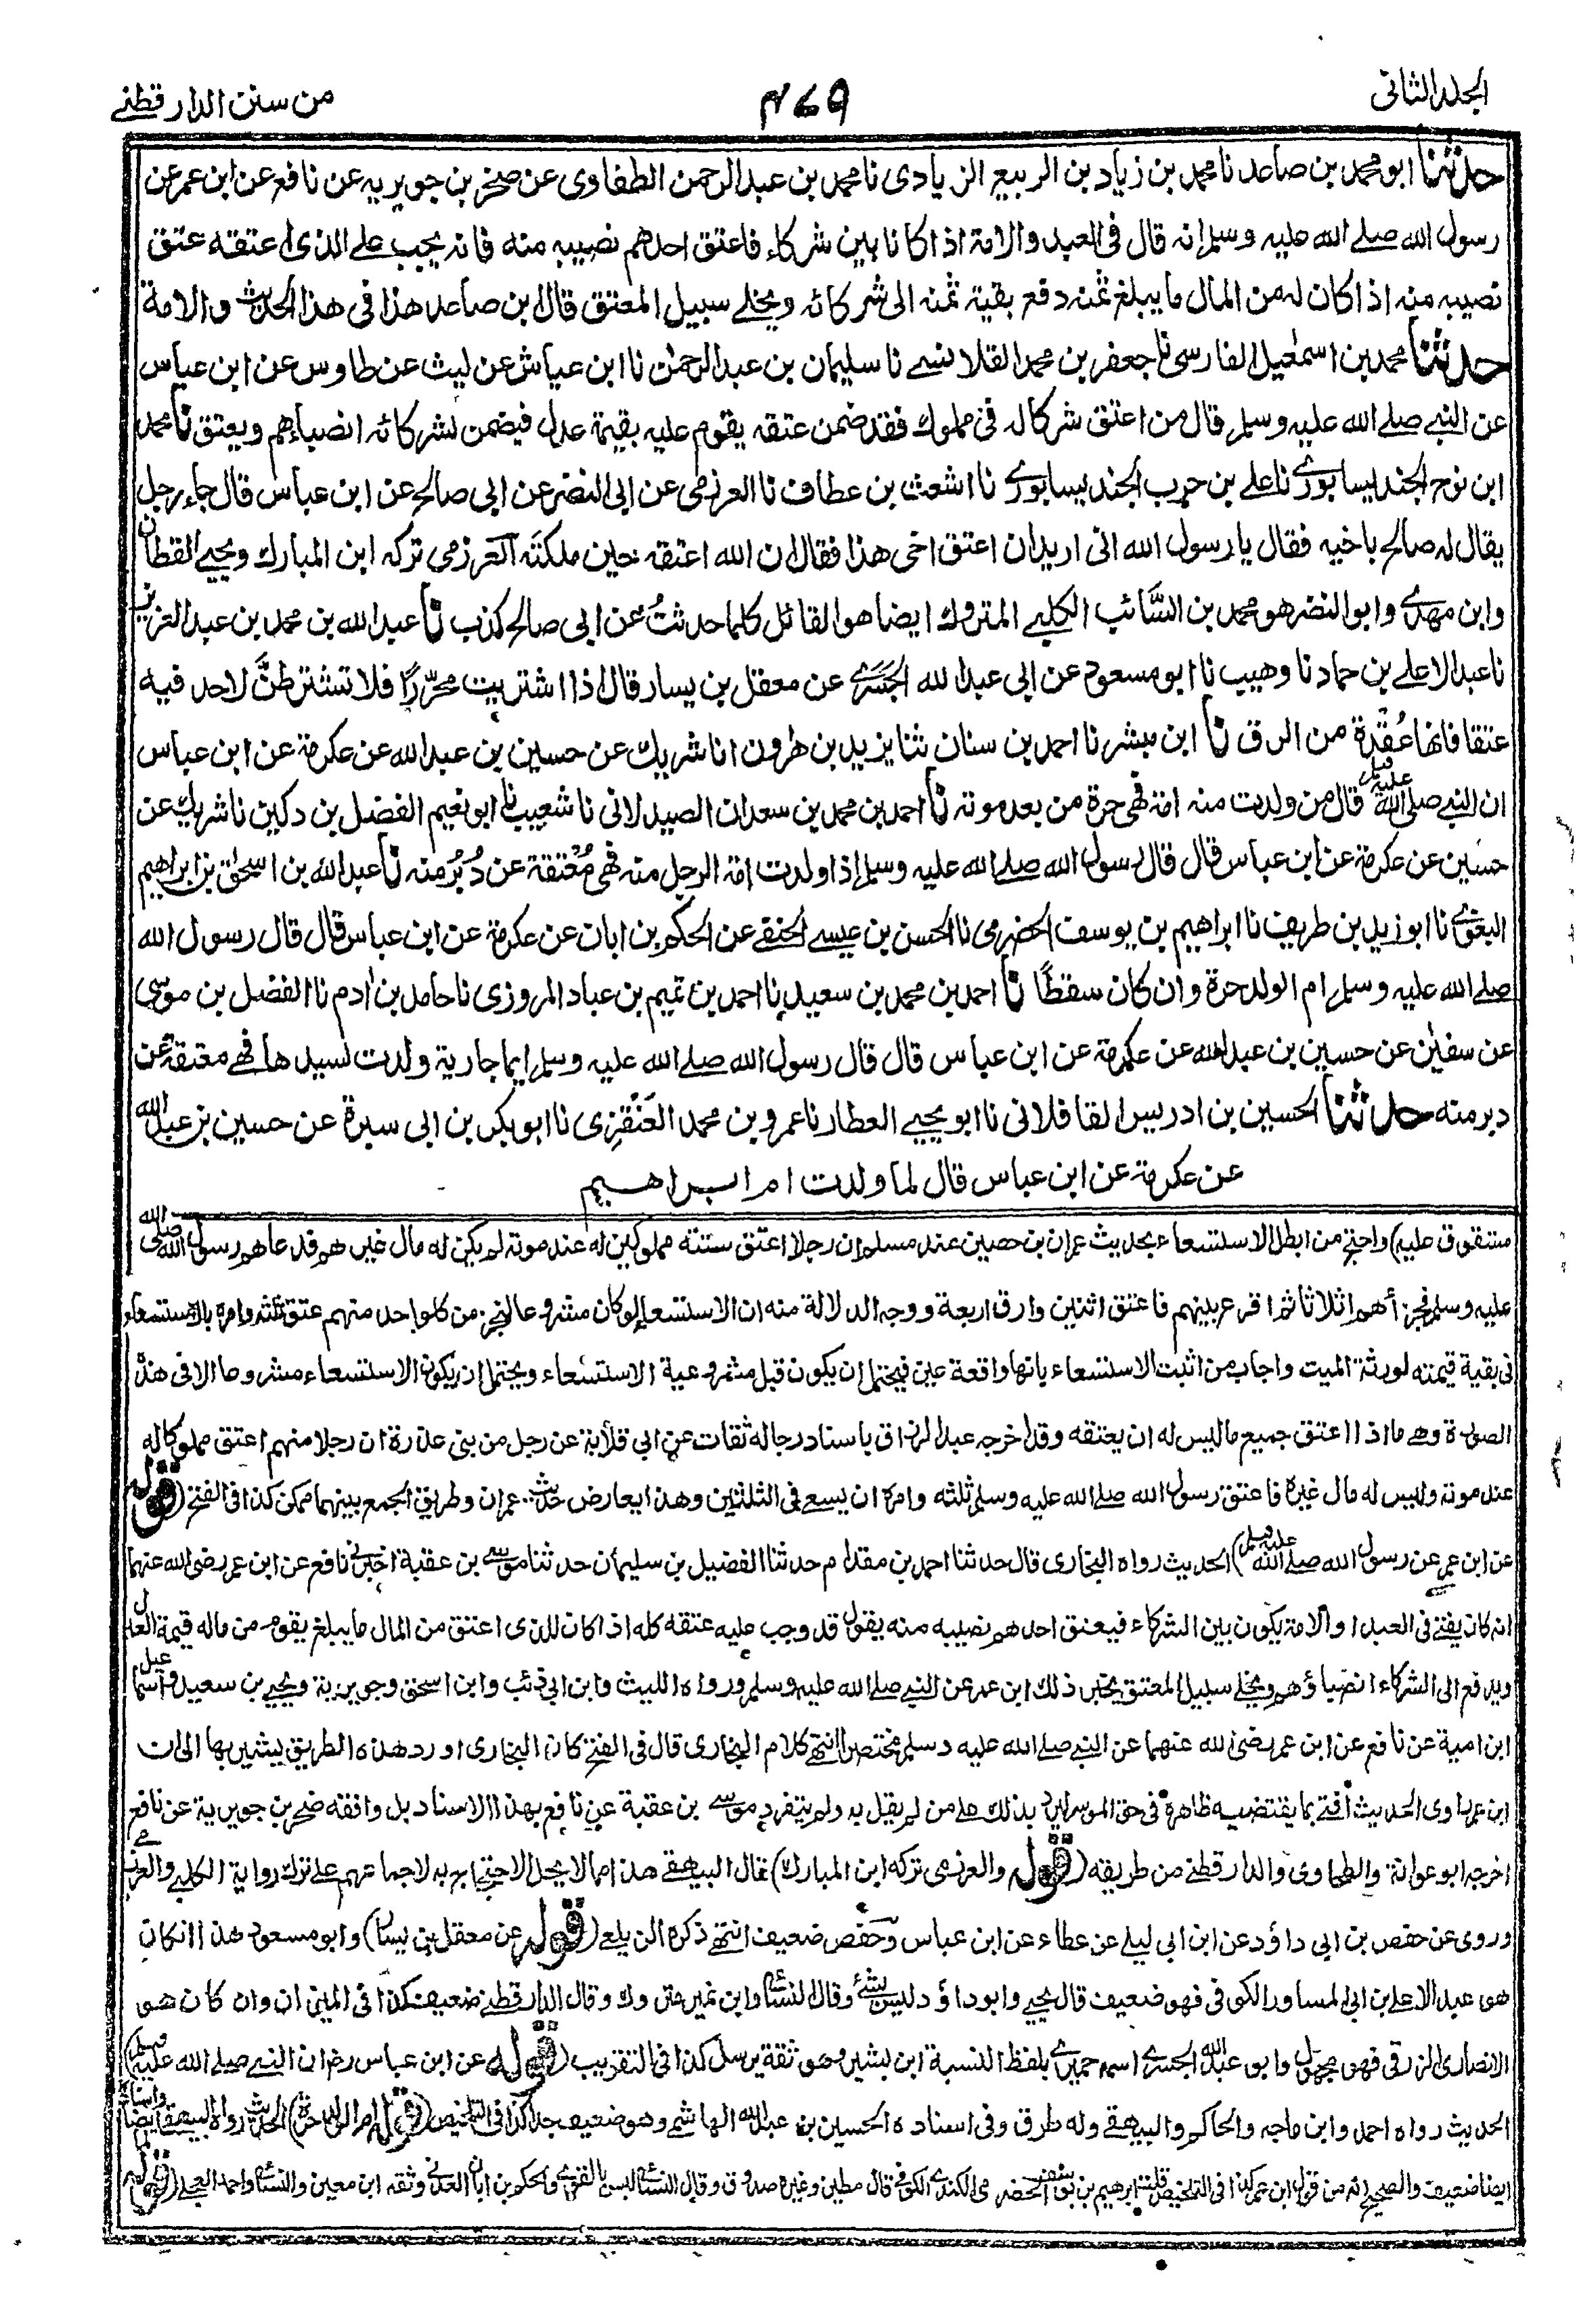 الجلد الثانى
٤٧٩
من سنن الدار قطنے
حدثنا ابو محمد بن صاعد نا محمد بن زياد بن الربيع الزيادى نا محمد بن عبد الرحمن الطفاوى عن صخر بن جويريه عن نافع عن ابن عمر عن
رسول الله صلے الله عليه وسلم انه قال فى العبد والامة اذا كانا بين شركاء فاعتق احدهم نصيبه منه فانه يجب علے الذى اعتقه عتق
نصيبه منه اذا كان له من المال ما يبلغ ثمنه دفع بقية ثمنه الى شركائه ويخلے سبيل المعتق قال ابن صاعد هذا فى هذا الحديث والامة
حدثنا محمد بن اسمعيل الفارسى نا جعفر بن محمد القلانسے نا سليمان بن عبد الرحمن نا ابن عياش عن ليث عن طاوس عن ابن عباس
عن النبے صلے الله عليه وسلم قال من اعتق شركا له فى مملوك فقد ضمن عتقه يقوم عليه بقيمة عدل فيضمن لشركائه انصباءهم ويعتق نا محمد
ابن نوح الجنديسابورى نا علے بن حرب الجنديسابورے نا اشعث بن عطاف نا العرزمى عن ابى النضر عن ابى صالح عن ابن عباس قال جاء رجل
يقال له صالح باخيه فقال يا رسول الله انى اريد ان اعتق اخى هذا فقال ان الله اعتقه حين ملكته العرزمى تركه ابن المبارك ويحيے القطان
وابن مهدے وابو النضر هو محمد بن السائب الكلبے المتروك ايضا هو القائل كلما حدثت عن ابى صالح كذب نا عبد الله بن محمد بن عبد العزيز
نا عبد الاعلے بن حماد نا وهيب نا ابو مسعود عن ابى عبد الله الجسرے عن معقل بن يسار قال اذا اشتريت محررا فلا تشترطن لاحد فيه
عتقا فانها عقدة من الرق نا ابن مبشر نا احمد بن سنان ثنا يزيد بن هارون انا شريك عن حسين بن عبد الله عن عكرمة عن ابن عباس
ان النبے صلى الله عليه وسلم قال من ولدت منه امة فهى حرة من بعد موته نا احمد بن محمد بن سعدان الصيدلانى نا شعيب نا ابو نعيم الفضل بن دكين نا شريك عن
حسين عن عكرمة عن ابن عباس قال قال رسول الله صلے الله عليه وسلم اذا ولدت امة الرجل منه فهى معتقة عن دبر منه نا عبد الله بن اسحق بن ابراهيم
البغوى نا ابو زيد بن طريف نا ابراهيم بن يوسف الحضرمى نا الحسن بن عيسے الحنفے عن الحكم بن ابان عن عكرمة عن ابن عباس قال قال رسول الله
صلے الله عليه وسلم ام الولد حرة وان كان سقطا نا احمد بن محمد بن سعيد نا احمد بن تميم بن عباد المروزى نا حامد بن ادم نا الفضل بن موسى
عن سفين عن حسين بن عبد الله عن عكرمة عن ابن عباس قال قال رسول الله صلے الله عليه وسلم ايما جارية ولدت لسيدها فهے معتقة عن
دبر منه حدثنا الحسين بن ادريس القافلانى نا ابو يحيے العطار نا عمرو بن محمد العنقزى نا ابو بكر بن ابى سبرة عن حسين بن عبد الله
عن عكرمة عن ابن عباس قال لما ولدت ام ابراهيم
متفوق عليه) واحتج من ابطل الاستسعاء بحديث عمران بن حصين عند مسلم ان رجلا اعتق ستة مملوكين له عند موته لم يكن له مال غيرهم فدعاهم رسول الله صلى الله
عليه وسلم فجزأهم اثلاثا ثم اقرع بينهم فاعتق اثنين وارق اربعة ووجه الدلالة منه ان الاستسعاء لو كان مشروعا لنجز من كل واحد منهم عتق ثلثه وامره بالاستسعاء
فى بقية قيمته لورثة الميت واجاب من اثبت الاستسعاء بانها واقعة عين فيحتمل ان يكون قبل مشروعية الاستسعاء ويحتمل ان يكون الاستسعاء مشروعا الا فى هذه
الصورة وهے ما اذا اعتق جميع ما ليس له ان يعتقه وقد اخرجه عبد الرزاق باسناد رجاله ثقات عن ابى قلابة عن رجل من بنى عذرة ان رجلا منهم اعتق مملوكا له
عند موته وليس له مال غيره فاعتق رسول الله صلے الله عليه وسلم ثلثه وامره ان يسعے فى الثلثين وهذا يعارض حديث عمران وطريق الجمع بينهما ممكن كذا فى الفتح (قوله
عن ابن عمر عن رسول الله صلے الله عليه وسلم) الحديث رواه البخارى قال حدثنا احمد بن مقدام حدثنا الفضيل بن سليمان حدثنا موسے بن عقبة اخبرنى نافع عن ابن عمر رضى الله عنهما
انه كان يفتے فى العبد او الامة يكون بين الشركاء فيعتق احدهم نصيبه منه يقول قد وجب عليه عتقه كله اذا كان للذى اعتق من المال ما يبلغ يقوم من ماله قيمة العدل
ويدفع الى الشركاء انصباؤهم ويخلے سبيل المعتق يخبر ذلك ابن عمر عن النبے صلے الله عليه وسلم ورواه الليث وابن ابى ذئب وابن اسحق وجويرية ويحيے بن سعيد واسمعيل
ابن امية عن نافع عن ابن عمر رضى الله عنهما عن النبے صلے الله عليه وسلم مختصرا انتهے كلام البخارى قال فى الفتح كان البخارى اورد هذه الطريق يشير بها الى ان
ابن عمر راوى الحديث افتے بما يقتضيه ظاهره فى حق الموسر ليرد بذلك علے من لم يقل به ولم يتفرد موسے بن عقبة عن نافع بهذا الاسناد بل وافقه صخر بن جويرية عن نافع
اخرجه ابو عوانة والطحاوى والدارقطنے من طريقه (قوله والعرزمى تركه ابن المبارك) قال البيهقے هذا مما لا يحل الاحتجاج به لاجماعهم علے ترك رواية الكلبے والعرزمے
وروى عن حفص بن ابى داؤد عن ابن ابى ليلے عن عطاء عن ابن عباس وحفص ضعيف انتهے ذكره الزيلعے (قوله عن معقل بن يسار) وابو مسعود هذا ان كان
هو عبد الاعلے بن ابى المساور الكوفى فهو ضعيف قال يحيے وابو داؤد ليس بشئ وقال النسائى وابن نمير متروك وقال الدارقطنے ضعيف كذا فى الميزان وان كان هو
الانصارى الزرقى فهو مجهول وابو عبد الله الجسرے اسمه حميرے بلفظ النسبة ابن بشير وهو ثقة يرسل كذا فى التقريب (قوله عن ابن عباس رض ان النبے صلے الله عليه وسلم)
الحديث رواه احمد وابن ماجه والحاكم والبيهقے وله طرق وفى اسناده الحسين بن عبد الله الهاشمى وهو ضعيف جدا كذا فى التلخيص (قوله ام الولد حرة) الحديث رواه البيهقے ايضا واسناده
ايضا ضعيف والصحيح انه من قول ابن عمر كذا فى التلخيص قلت ابرهيم بن يوسف الحضرمى الكندے الكوفى قال مطين وغيره صدوق وقال النسائى ليس بالقوى والحكم بن ابان العدنى وثقه ابن معين والنسائى واحمد العجلے (قوله